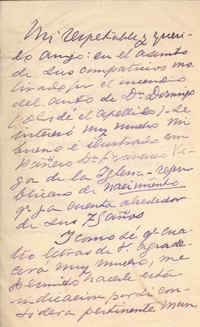 Mi respetable y queri-
do amigo: en el asunto
de sus compatricios mo-
tivado por el incendio
del auto de Dn. Domingo
(olvidé el apellido) - se
interesó muy mucho mi
bueno é ilustrado com-
pañero Dn.
de la Iglesia - repu-
blicano de nacimiento
q. ya cuenta alrededor
de sus 75 años
Y como sé que cua-
tro letras de V. agrade-
cerá muy mucho, me
permito hacerle esta
indicación, por si con-
sidera pertinente man